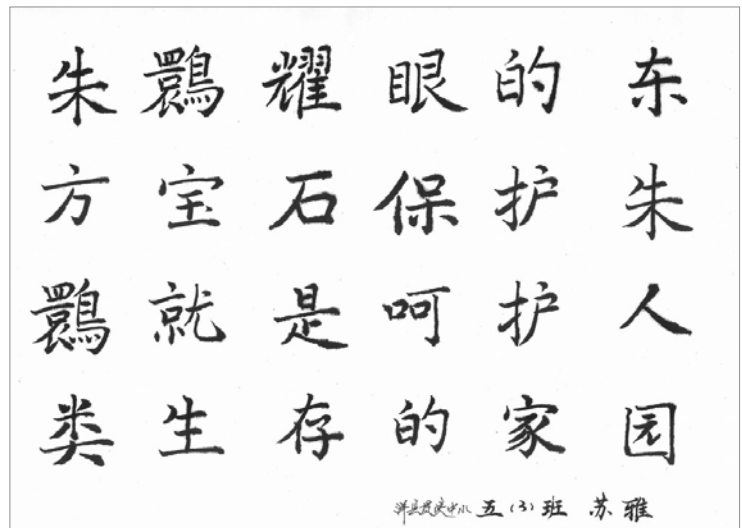 朱䴉耀眼的东
方宝石保护朱
䴉就是呵护人
类生存的家园
洋县 五(3)班 苏雅